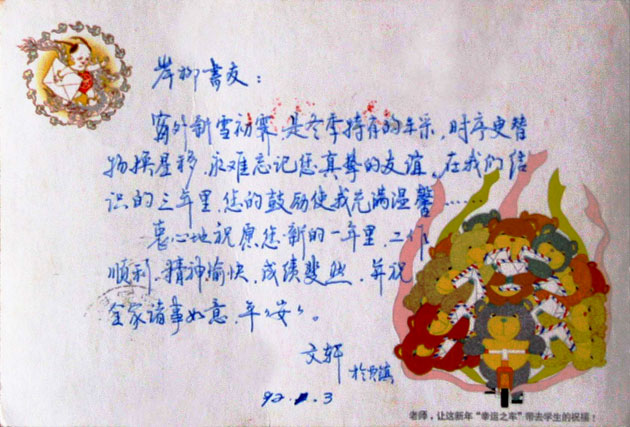 岸柳書友：
窗外新雪初霁，是冬季特有的年景，时序更替
物换星移，永难忘记您真挚的友谊，在我们结
识的三年里，您的鼓励使我充满温馨……
衷心地祝愿您新的一年里，工作
顺利，精神愉快，成绩斐然，并祝
全家诸事如意，年“安”。
文轩
于
92 . 3
老师，让这新年“幸运之车”带去学生的祝福！